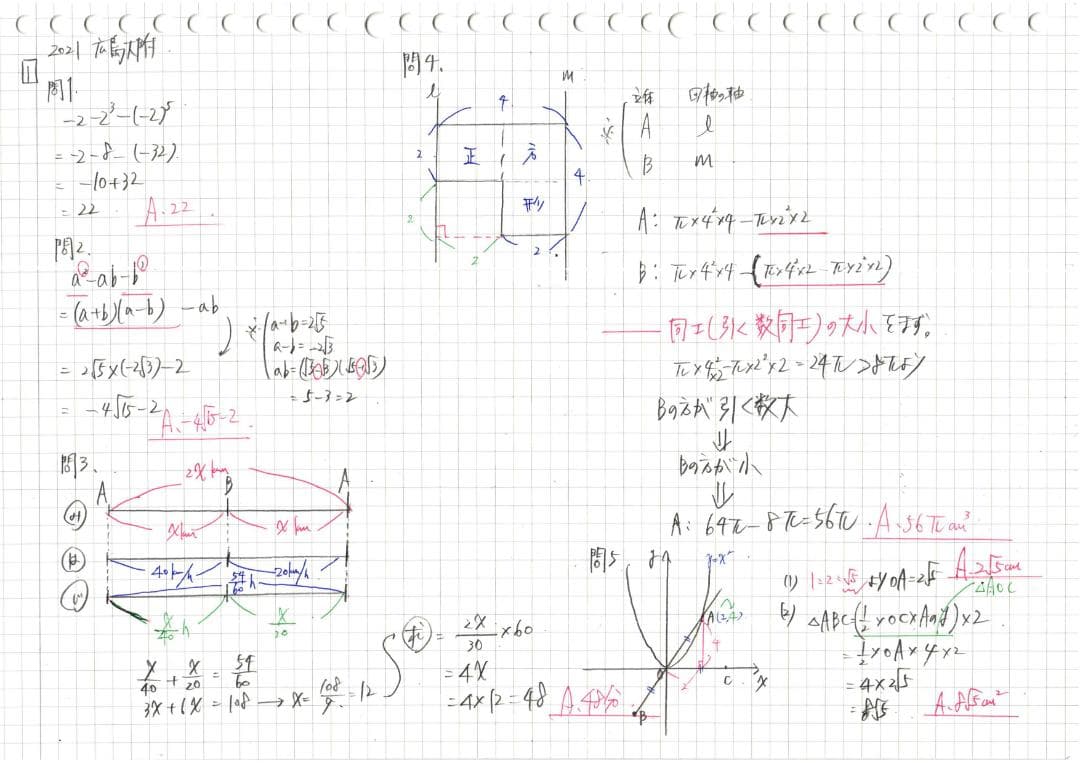 2021 広島大附
1
問1.
-2-2³-(-2)⁵
= -2-8-(-32)
= -10+32
= 22 A.22.
問2.
a²-ab-b²
= (a+b)(a-b) -ab
= 2√5×(-2√3)-2
= -4√15-2 A.-4√15-2.
※ a+b=2√5
a-b=-2√3
ab=(√5-√3)(√5+√3)
=5-3=2
問3.
2x km
A B A
x km x km
40km/h 20km/h
54/60 h
x/40 h x/20
x/40 + x/20 = 54/60
3x+6x=108 → x=108/9=12
= 2x/30 ×60
=4x
=4×12=48 A.48分
問4.
l m
4
2 正 方 4
形
2 2 2
※ 立体 回転の軸
A l
B m
A: π×4²×4-π×2²×2
B: π×4²×4-(π×4²×2-π×2²×2)
同士(引く数同士)の大小を示す。
π×4²×2-π×2²×2=24π>8πより
Bの方が引く数大
⇓
Bの方が小
⇓
A: 64π-8π=56π. A.56πcm³
問5
y y=x²
A(2,4)
4
O 2 C x
B
(1) 1=2=√5 よりOA=2√5 A.2√5cm
△AOC
(2) △ABC=(1/2×OC×Aのy)×2
=1/2×OA×4×2
=4×2√5
=8√5 A.8√5cm²